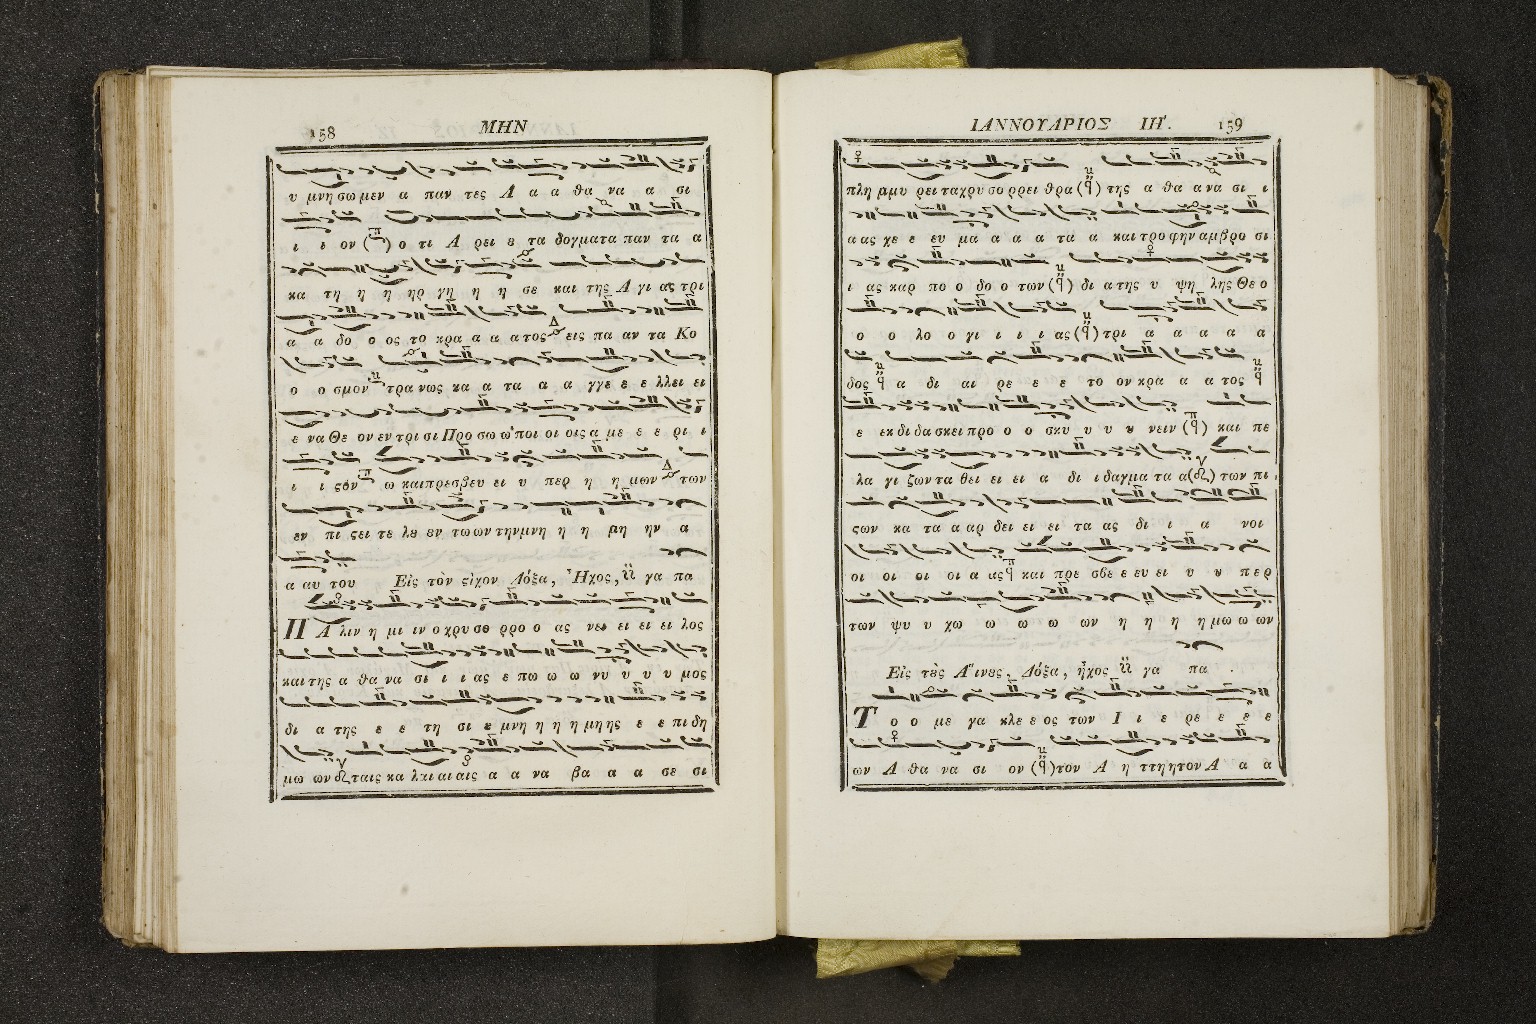 158
ΜΗΝ
υ μνη σω μεν α παν τες Α α α θα να α σι
ι ι ον (π) ο τι Α ρει ȣ τα δογματα παν τα α
κα τη η η ηρ γη η η σε και της Α γι ας τρι
α α δο ο ος το κρα α α ατος Δ εις πα αν τα Κο
ο ο σμον τρα νως κα α τα α α γγε ε ε λλει ει
ε να Θε ον εν τρι σι Προ σω ω ποι οι οις α με ε ε ρι ι
ι ι ςον ω και πρεσβευ ει υ περ η η μων Δ των
εν πι ςει τε λȣ ȣν τω ων την μνη η η μη ην α
α αυ του Εἰς τὸν ςίχον Δόξα, Ἦχος, γα πα
ΠΑ λιν η μι ιν ο χρυ σο ρρο ο ας νει ει ει ει λος
και της α θα να σι ι ι ας ε πω ω ω νυ υ υ υ μος
δι α της ε ε τη σι ȣ μνη η η η μη ης ε ε πι δη
μω ων ταις κα λαι αι αις α α να βα α α σε σι
ΙΑΝΝΟΥΑΡΙΟΣ ΙΗ΄. 159
πλη μμυ ρει τα χρυ σο ρρει θρα (q) της α θα α να σι ι
α ας χε ε ευ μα α α α τα α και τρο φην αμβρο σι
ι ας καρ πο ο δο ο των (q) δι α της υ ψη λης Θε ο
ο ο λο ο γι ι ι ι ας (q) τρι α α α α α
δος q α δι αι ρε ε ε το ον κρα α α τος q
ε εκ δι δα σκει προ ο ο σκυ υ υ υ νειν (q) και πε
λα γι ζων τα θει ει ει α δι ι δαγμα τα α() των πι
ςων κα τα α αρ δει ει ει τα ας δι ι α νοι
οι οι οι οι α ας q και πρε σβε ε ευ ει υ υ περ
των ψυ υ χω ω ω ω ων η η η η μω ω ων
Εἰς τὲς Α῎ινες, Δόξα, ἦχος γα πα
Τ ο ο με γα κλε ε ος των Ι ι ε ρε ε ε ε
ων Α θα να σι ον (q) τον Α η ττη ητον Α α α